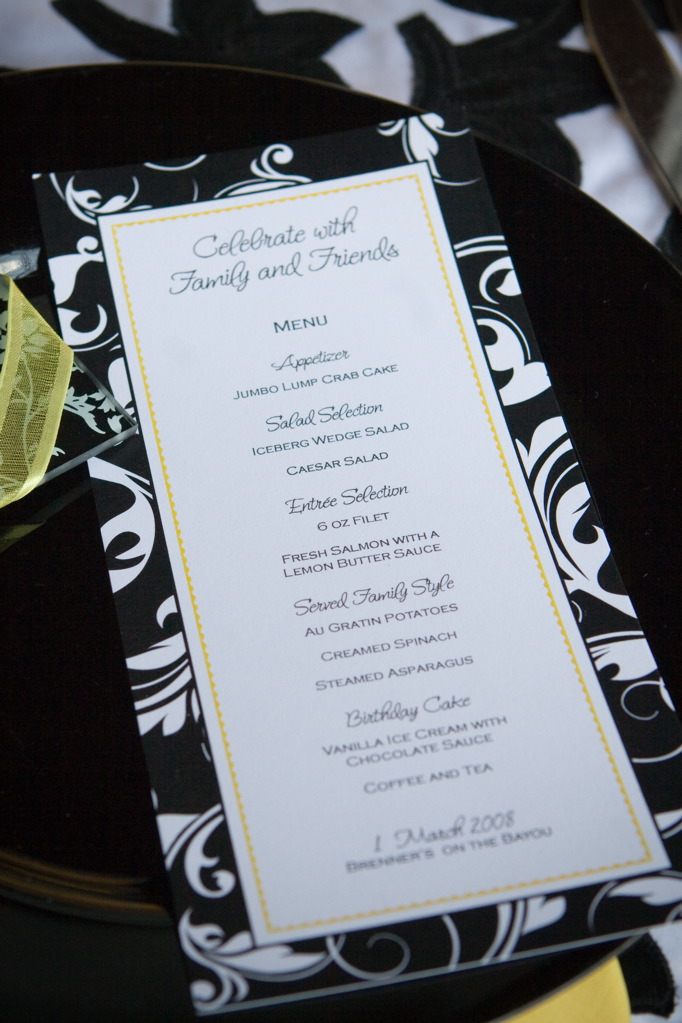 Celebrate with
Family and Friends
MENU
Appetizer
JUMBO LUMP CRAB CAKE
Salad Selection
ICEBERG WEDGE SALAD
CAESAR SALAD
Entrée Selection
6 OZ FILET
FRESH SALMON WITH A
LEMON BUTTER SAUCE
Served Family Style
AU GRATIN POTATOES
CREAMED SPINACH
STEAMED ASPARAGUS
Birthday Cake
VANILLA ICE CREAM WITH
CHOCOLATE SAUCE
COFFEE AND TEA
1 March 2008
BRENNER'S ON THE BAYOU